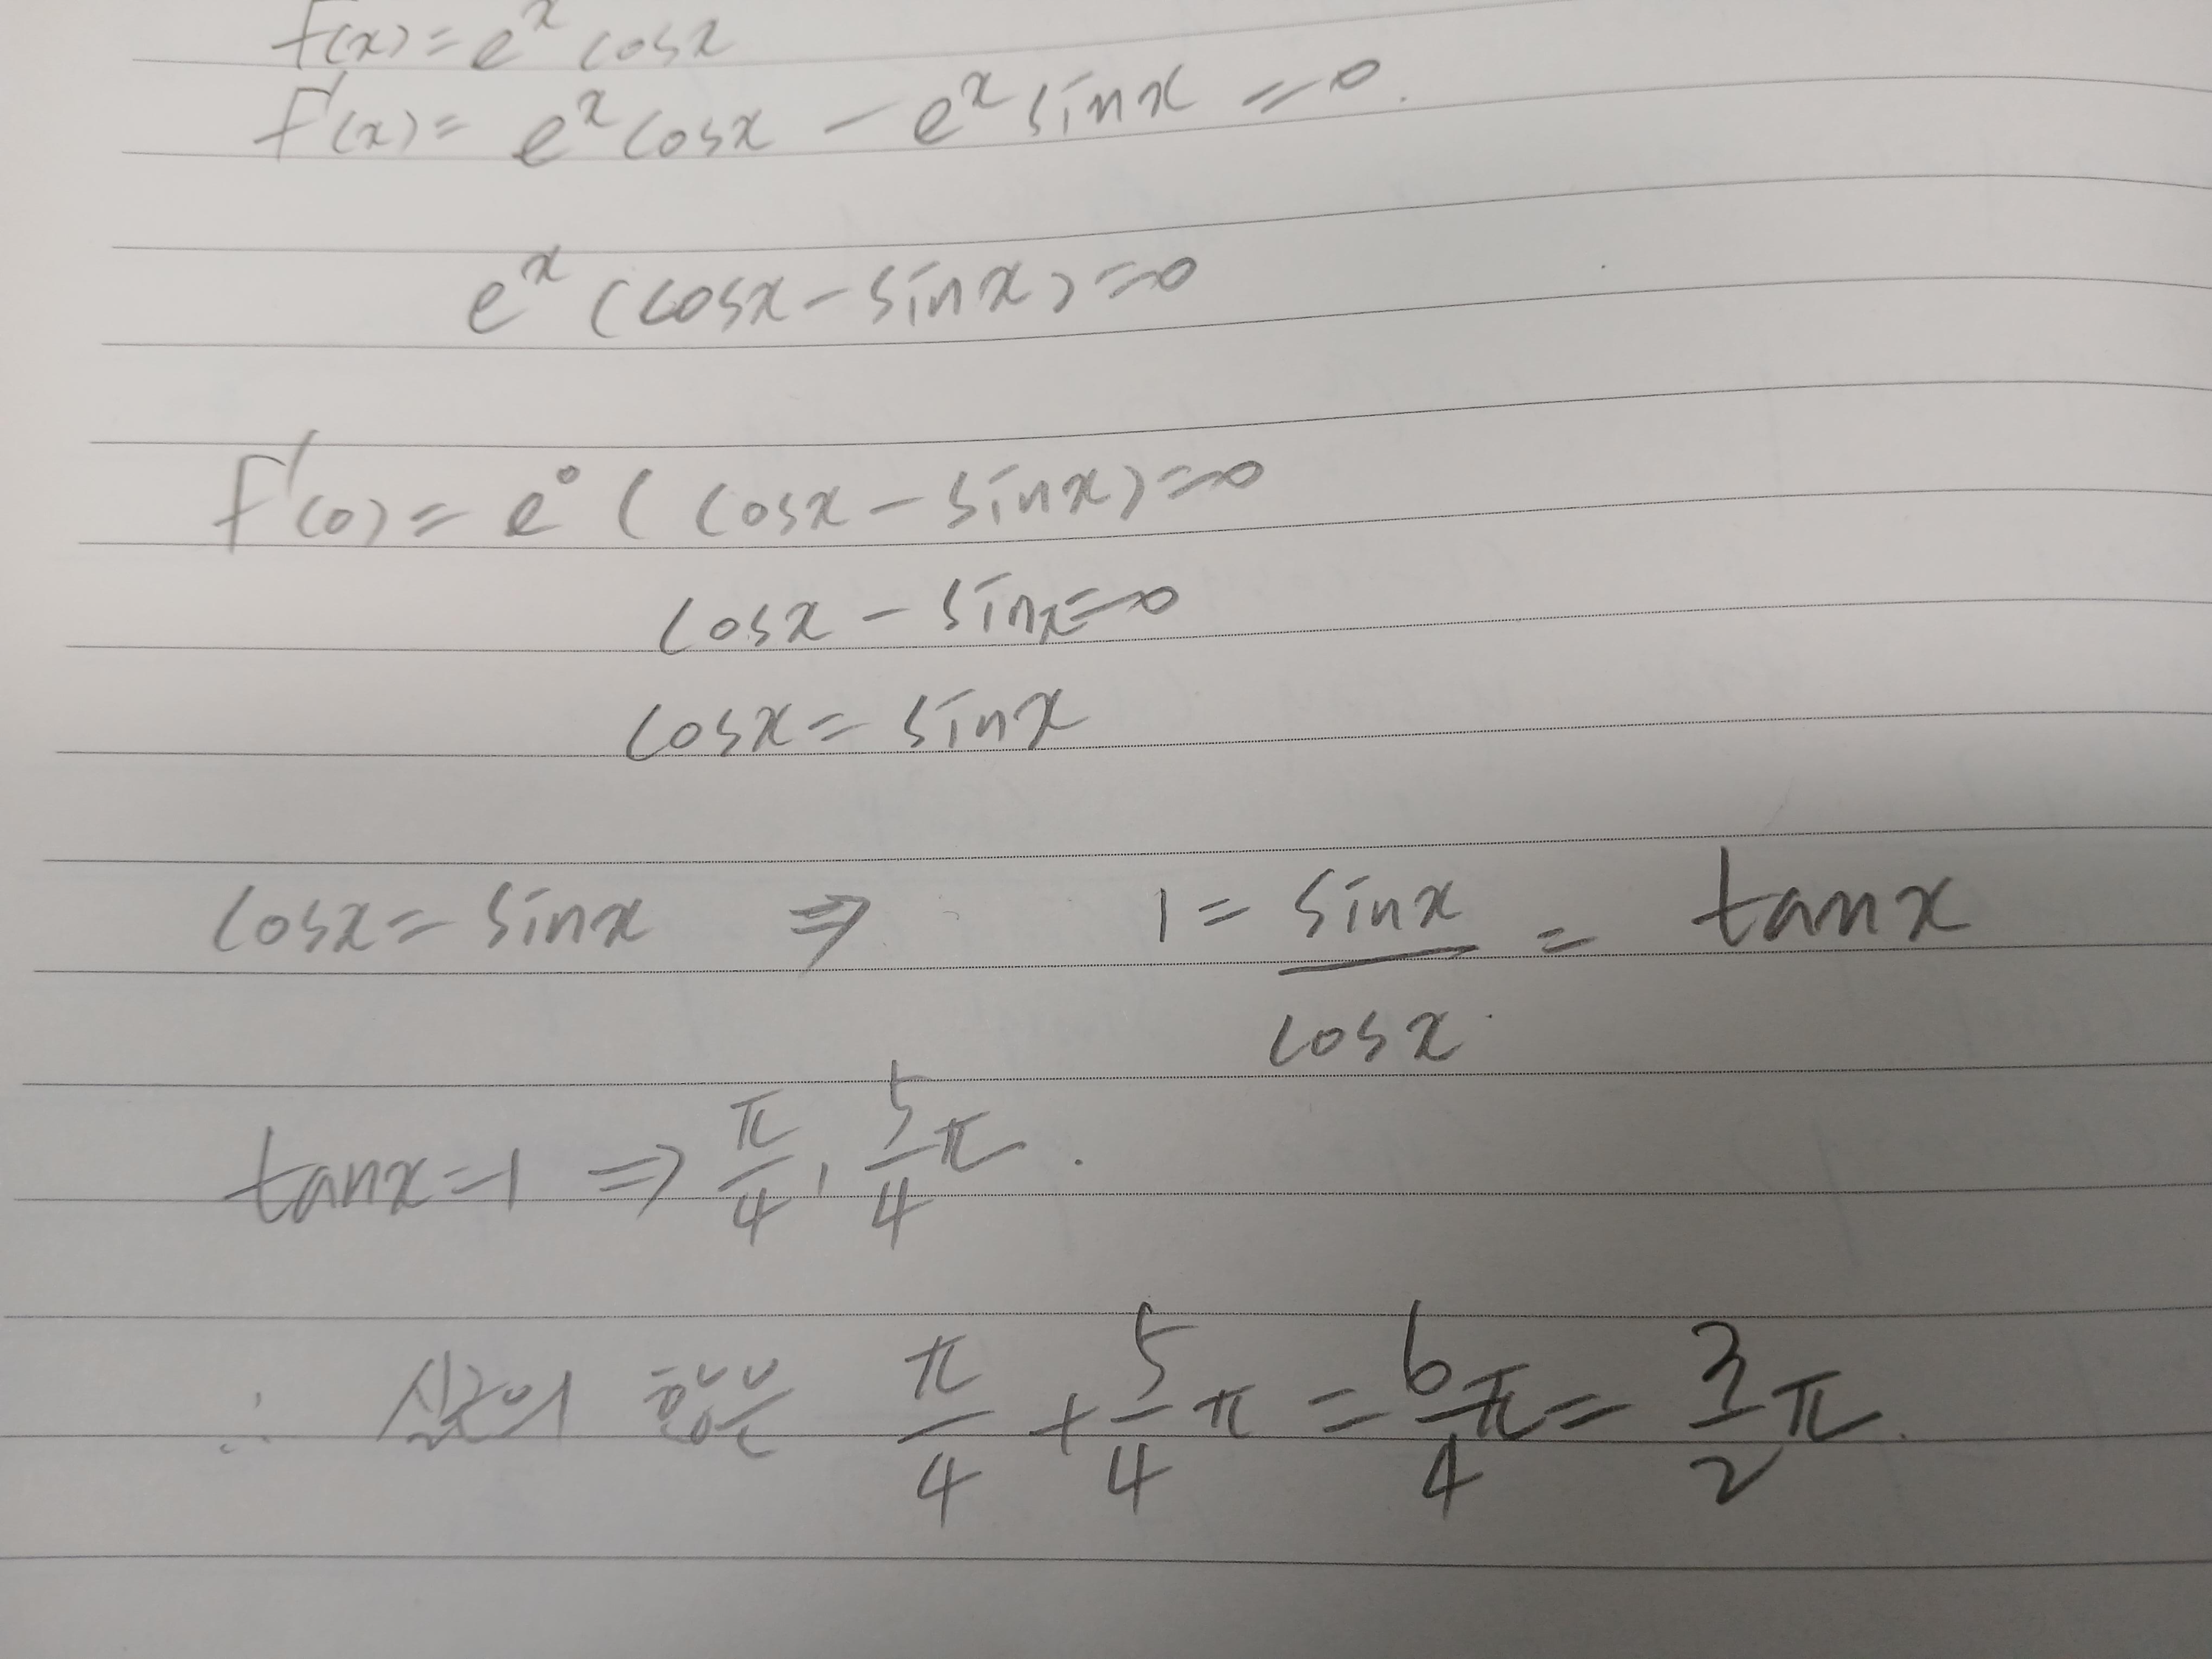 f(x) = e^x cosx
f'(x) = e^x cosx - e^x sinx = 0.
e^x (cosx - sinx) = 0
f'(0) = e^0 ( cosx - sinx) = 0
cosx - sinx = 0
cosx = sinx
cosx = sinx ⇒ 1 = sinx/cosx = tanx
tanx = 1 ⇒ π/4, 5/4 π.
∴ 실근의 합은 π/4 + 5/4 π = 6/4 π = 3/2 π.